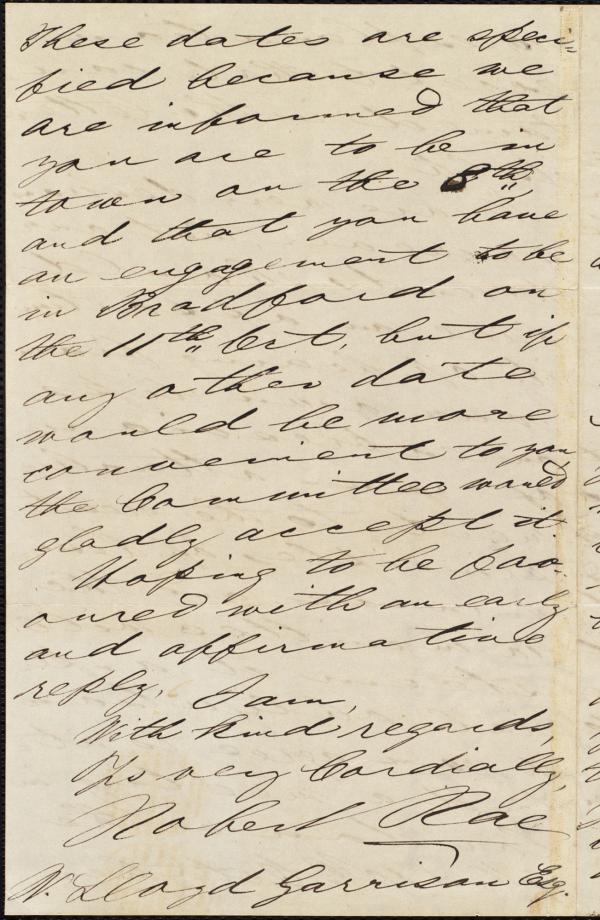 These dates are speci=
fied because we
are informed that
you are to be in
town on the 8th,
and that you have
an engagement to be
in Bradford on
the 11th Oct, but if
any other date
would be more
convenient to you,
the Committee would
gladly accept it.
Hoping to be fav-
oured with an early
and affirmative
reply, I am,
With kind regards,
Yrs very Cordially,
Robert Rae
W. Lloyd Garrison Esq.